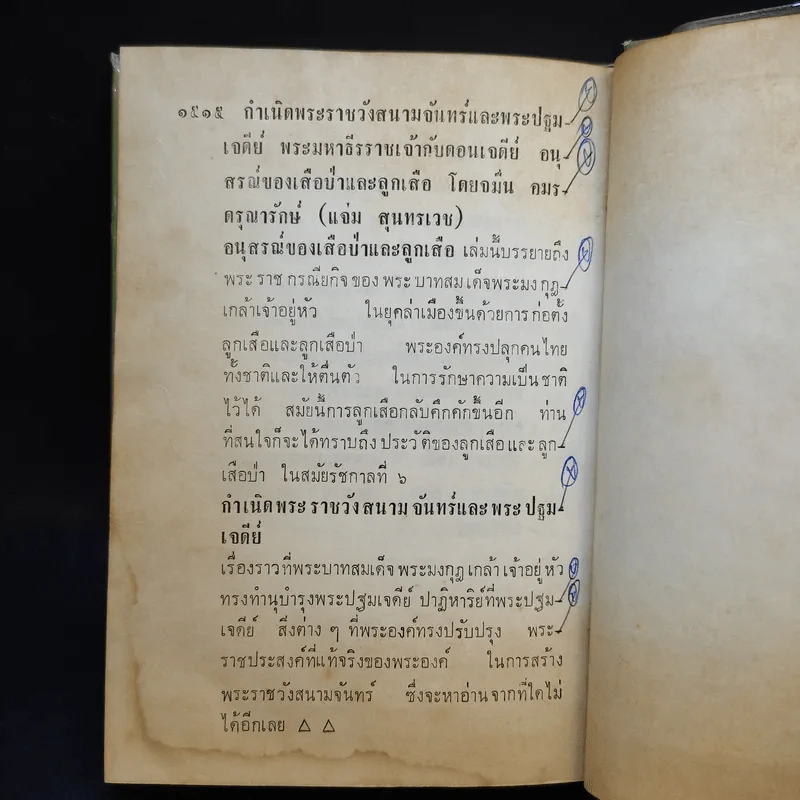 ๑๕๑๕ กำเนิดพระราชวังสนามจันทร์และพระปฐม-
เจดีย์ พระมหาธีรราชเจ้ากับดอนเจดีย์ อนุ-
สรณ์ของเสือป่าและลูกเสือ โดยจมื่น อมร-
ดรุณารักษ์ (แจ่ม สุนทรเวช)
อนุสรณ์ของเสือป่าและลูกเสือ เล่มนี้บรรยายถึง
พระราชกรณียกิจของพระบาทสมเด็จพระมงกุฎ-
เกล้าเจ้าอยู่หัว ในยุคล่าเมืองขึ้นด้วยการก่อตั้ง
ลูกเสือและลูกเสือป่า พระองค์ทรงปลุกคนไทย
ทั้งชาติและให้ตื่นตัว ในการรักษาความเป็นชาติ
ไว้ได้ สมัยนี้การลูกเสือกลับคึกคักขึ้นอีก ท่าน
ที่สนใจก็จะได้ทราบถึงประวัติของลูกเสือและลูก-
เสือป่า ในสมัยรัชกาลที่ ๖
กำเนิดพระราชวังสนามจันทร์และพระปฐม-
เจดีย์
เรื่องราวที่พระบาทสมเด็จพระมงกุฎเกล้าเจ้าอยู่หัว
ทรงทำนุบำรุงพระปฐมเจดีย์ ปาฏิหาริย์ที่พระปฐม-
เจดีย์ สิ่งต่าง ๆ ที่พระองค์ทรงปรับปรุง พระ-
ราชประสงค์ที่แท้จริงของพระองค์ ในการสร้าง
พระราชวังสนามจันทร์ ซึ่งจะหาอ่านจากที่ใดไม่
ได้อีกเลย △ △